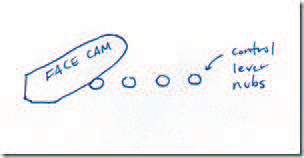 FACE CAM
control
lever
nubs